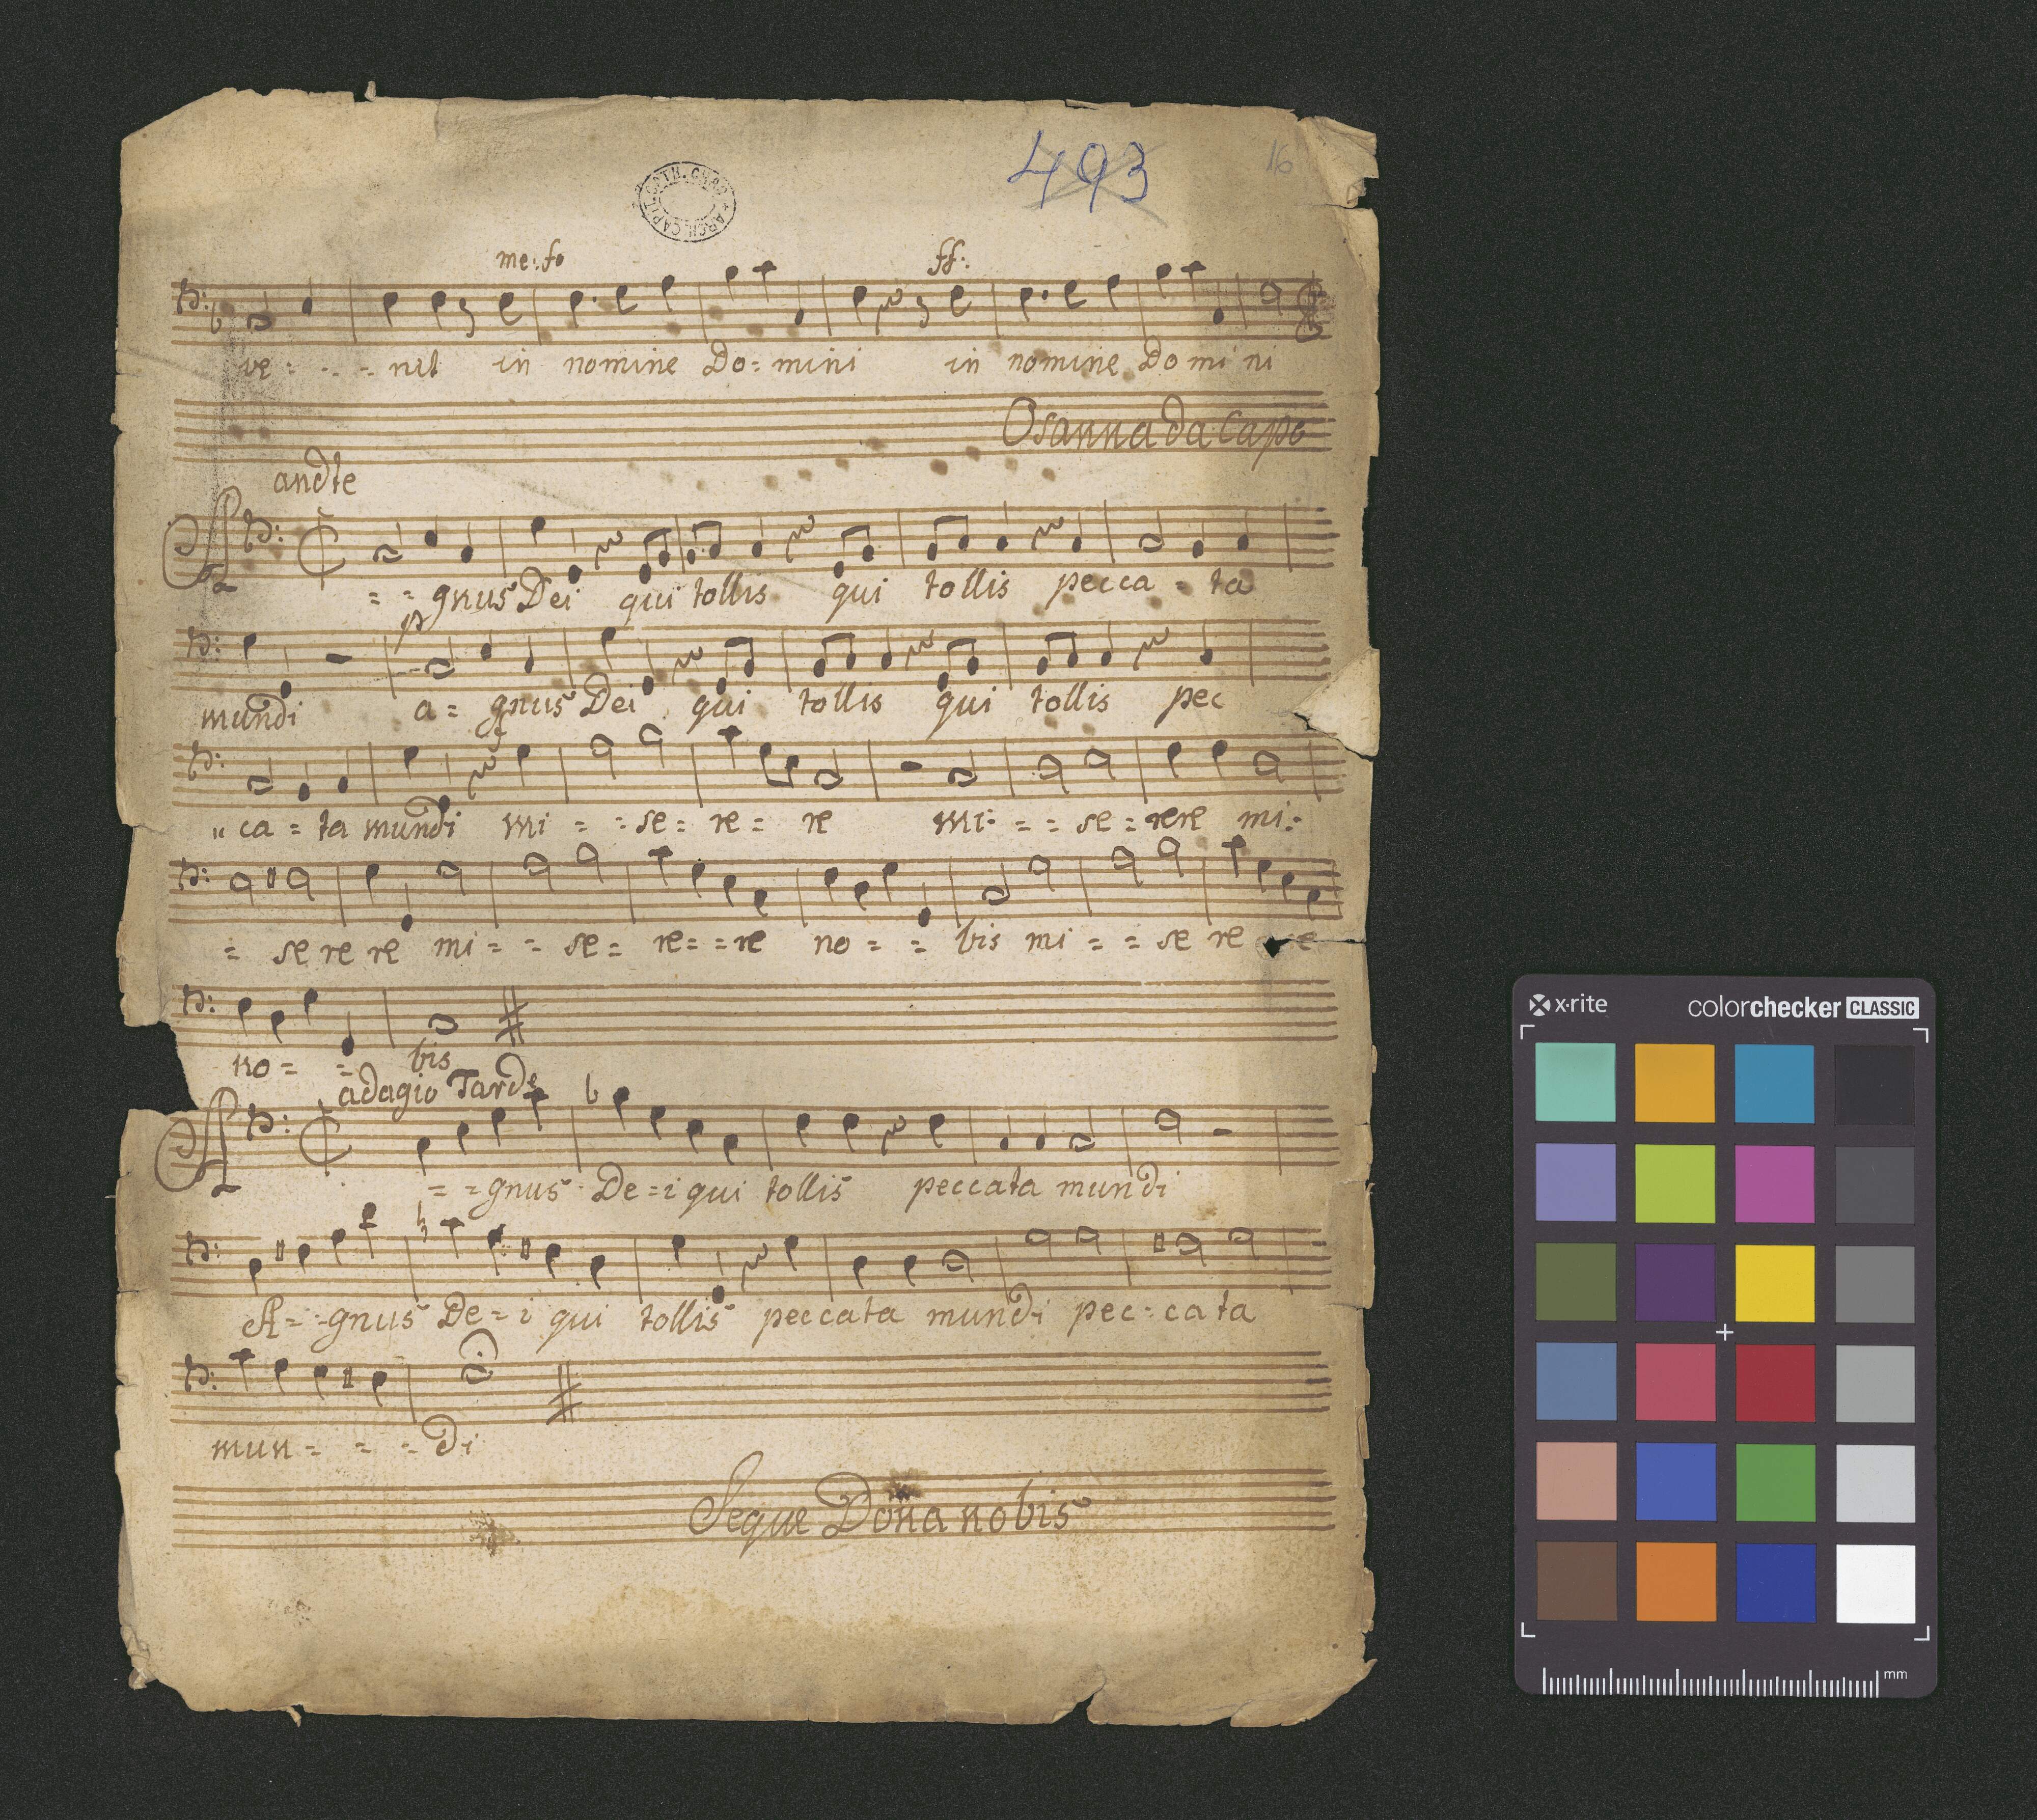 493
16
CAPIT. CATH. CRAC. * ARCH.
me: fo ff:
ve = - - - nit in nomine Do= mini in nomine Do mi ni
Osanna da Capo
andte
A = = gnus Dei qui tollis qui tollis pecca = ta
p
mundi a = gnus Dei qui tollis qui tollis pec
f
" ca = ta mundi mi = = se = re = re mi: = = se = rere mi:
= se re re mi = = se = re= =re no = = bis mi = = se re re
no = = bis
adagio Tarde
A = =gnus De=i qui tollis peccata mundi
A= =gnus De=i qui tollis peccata mundi pec=cata
mun= = = di
Seque Dona nobis
x·rite colorchecker CLASSIC
mm